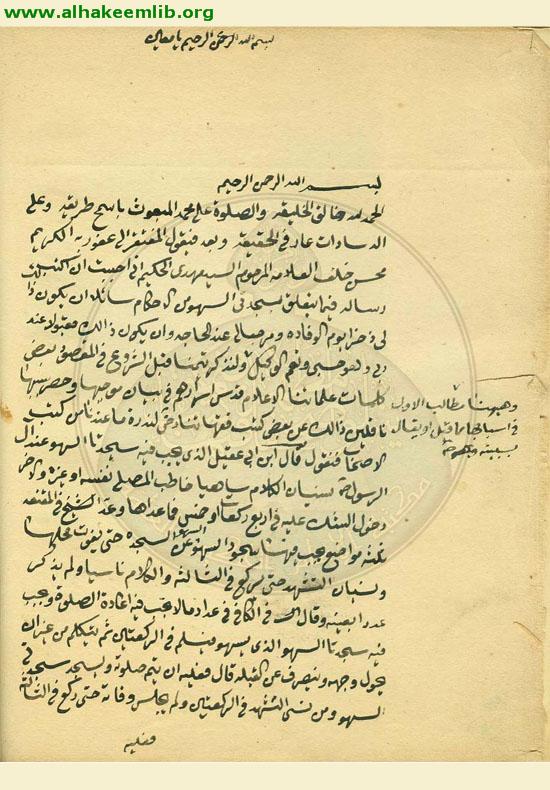 www.alhakeemlib.org
بسم الله الرحمن الرحيم يا معين
بسم الله الرحمن الرحيم
الحمد لله خالق الخليقه والصلوة على محمد المبعوث باسمح طريقه وعلى
اله سادات عارفي الحقيقة وبعد فيقول المفتقر الى عفو ربه الكريم
محسن خلف العلامه المرحوم السيد مهدي الحكيم اني احببت ان اكتب لك
رساله فيما يتعلق بسجدتي السهو من الاحكام سائلا ان يكون ذا
لي ذخرا يوم الوفاده ومرضيا لي عند الحاجه وان يكون ذالك مقبولا عند
ربي وهو حسبي ونعم الوكيل ولنذكر تيمنا قبل الشروع في المقصود بعض
كلمات علمائنا الاعلام قدس اسرارهم في بيان موجبها وحصر سببها
ناقلين ذالك عن بعض كتب فقهائنا رض لندرة ما عندنا من كتب
الاصحاب فنقول قال ابن ابي عقيل الذي يجب فيه سجدتا السهو عند ال
الرسول نسيان الكلام ساهيا خاطب المصلي نفسه او غيره والاخر
دخول الشك عليه في اربع ركعات وخمس فما عداها وعد الشيخ في المقنعه
ثلثة مواضع يجب فيها سجود السهو السهو عن السجده حتى يفوت محلها
ونسيان التشهد حتى يركع في الثالثه والكلام ناسيا ولم يذكر
عددا بعينه وقال في الكافي في عداد ما لا تجب فيه اعادة الصلوة ويجب
فيه سجدتا السهو الذي يسهو فيسلم في الركعتين ثم يتكلم من غير ان
يحول وجهه وينصرف عن القبله قال فعليه ان يتم صلوته ويسجد سجدتي
السهو ومن نسي التشهد في الركعتين ولم يجلس وفاته حتى ركع في الثالثة
فعليه
وهيهنا مطالب الاول
في اسبابها ما قيل او يقال